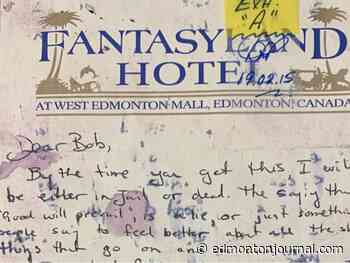 EXH.
"A"
19.02.15
FANTASYLAND
HOTEL
AT WEST EDMONTON MALL, EDMONTON, CANADA
Dear Bob,
By the time you get this, I wil
be either in Jail or dead. The saying tha
"Good will prevail", is a lie, or just somethin
people say to feel better about all the sh
things that go on an
edmontonjournal.com